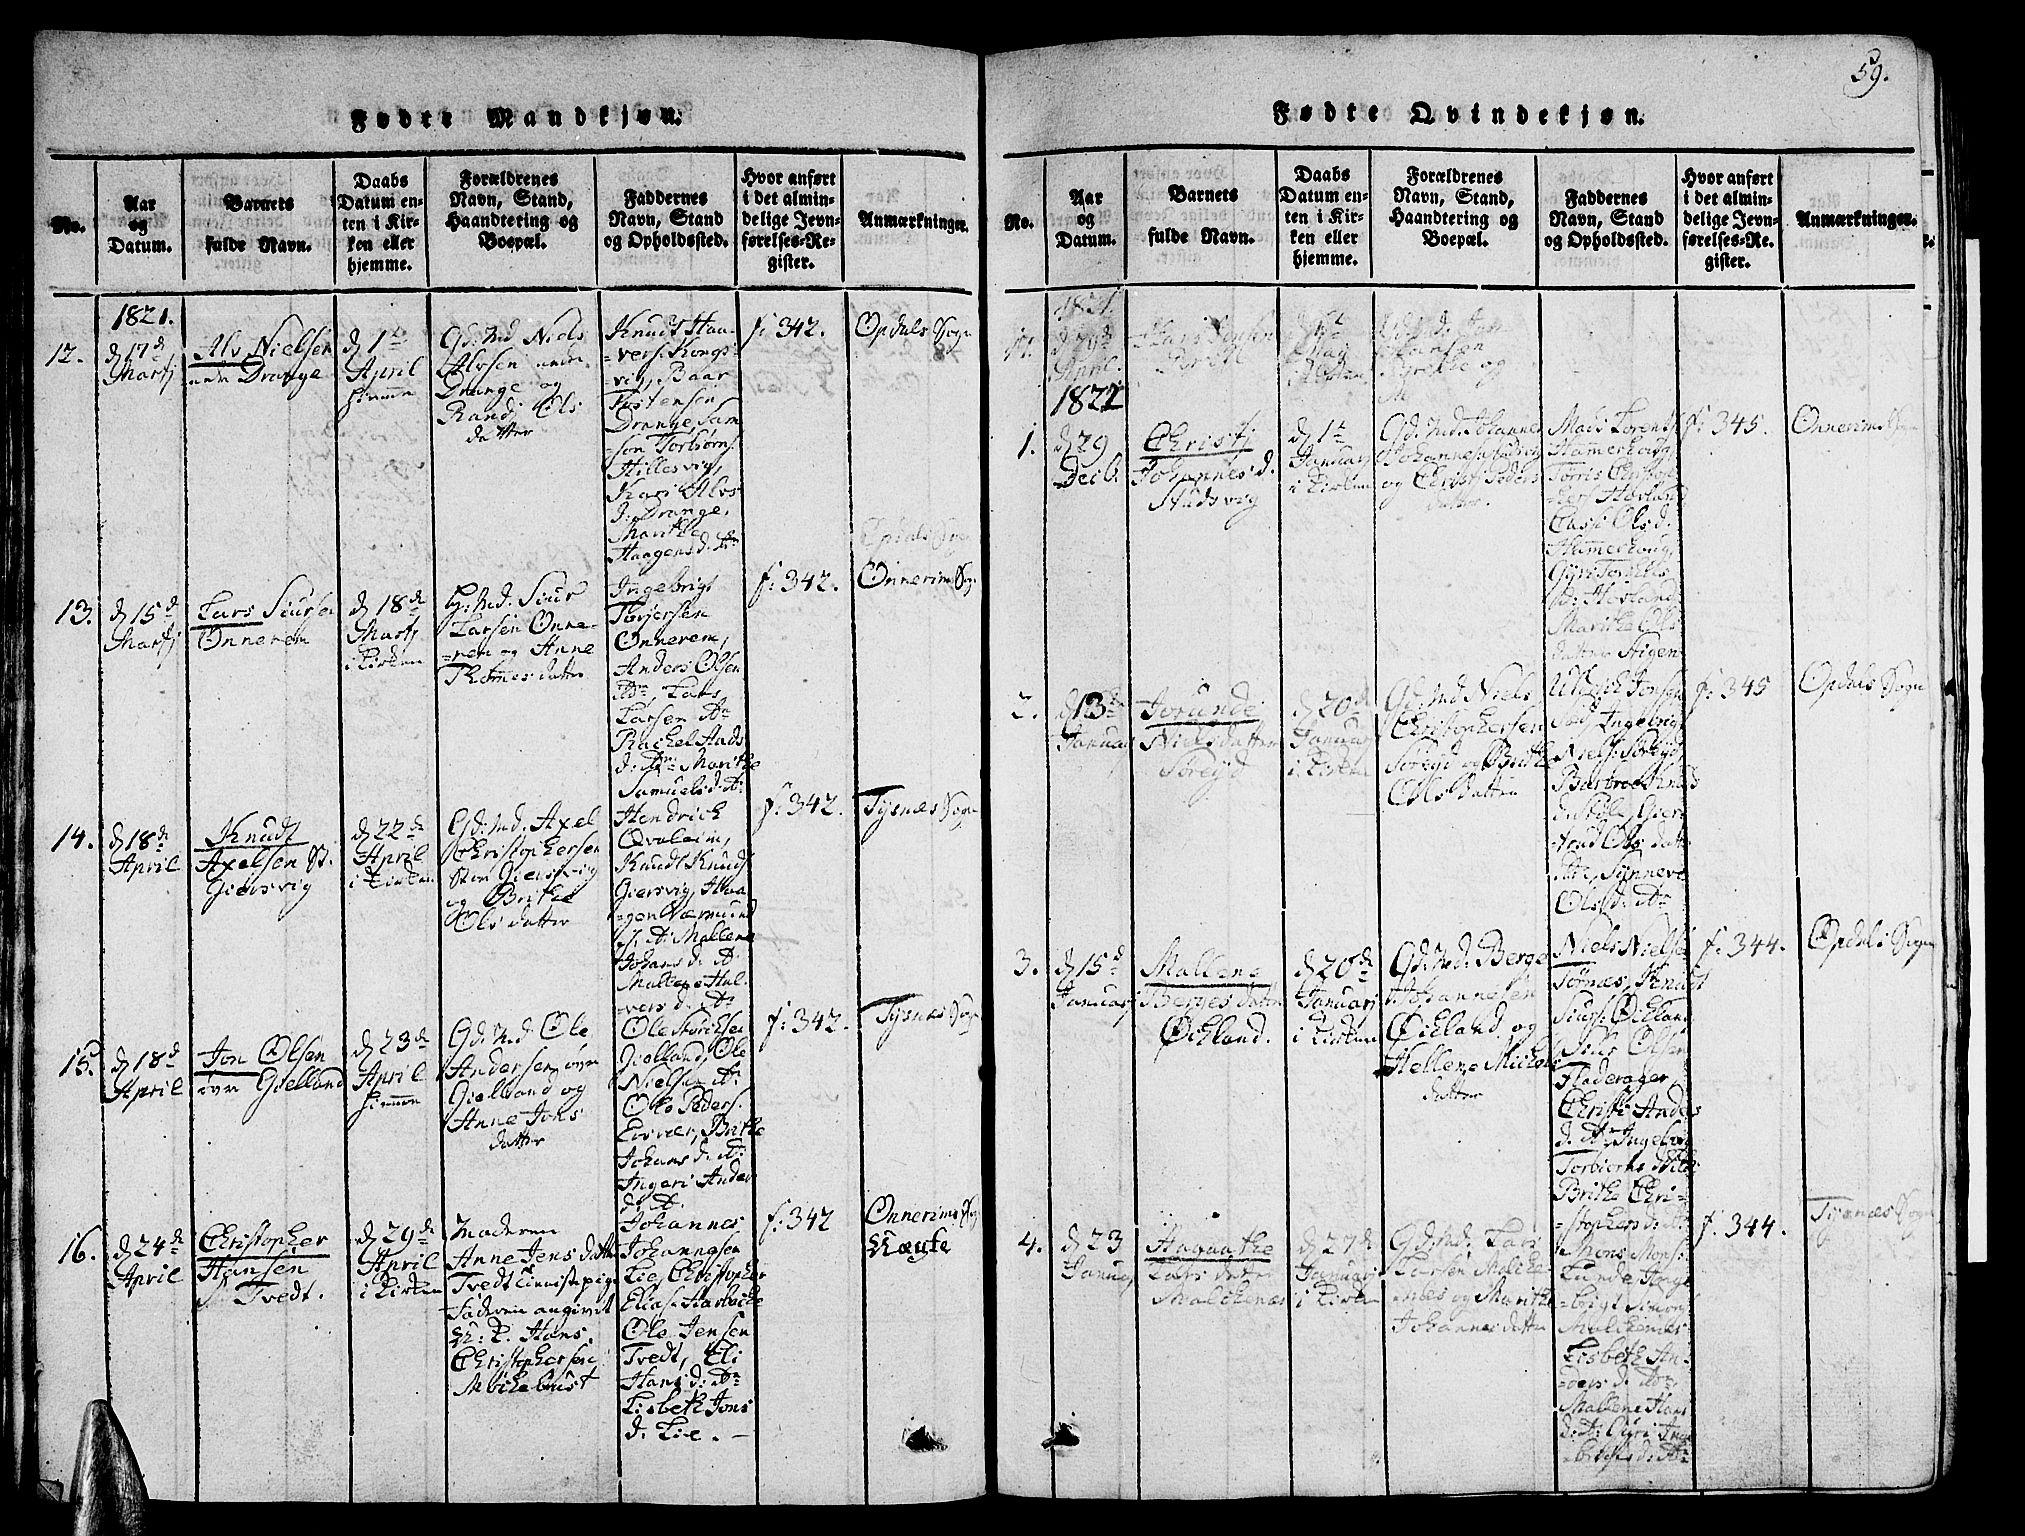 59.
Fødte Mandkjøn.
No.
Aar
og
Datum.
Barnets
fulde Navn.
Daabs
Datum en-
ten i Kir-
ken eller
hjemme.
Forældrenes
Navn, Stand,
Haandtering og
Boepæl.
Faddernes
Navn, Stand
og Opholdssted.
Hvor anført
i det almin-
delige Jevn-
førelses-Re-
gister.
Anmærkninger.
1821.
12.
d 17d
Martj
Alv Nielsen
Drange
d 1te
April
hiemme
Gd: Md Niels
Alvsen
Drange og
Randi Ols
datter
Knudt Haa-
=vers: Kongs-
=vig, Baar
Tostensen
Drange Sam-
=son Torbiørns:
Hillesvig,
Kari Alvs
d: Drange,
Marithe
Haagensd: Ao
f: 342.
Opdals Sogn
13.
d 15d
Martj
Lars Siursen
Onnerem
d 18de
Martj
i Kirken
G: Md. Siur
Larsen Onne-
=rem og Anne
Thomes datter
Ingebrigt
Torjersen
Onnerem,
Anders Olsen
Ao, Lars
Larsen Ao
Rachel Ands
d: Ao Marithe
Samuelsd: Ao
f: 342.
Onnerims Sogn
14.
d 18de
April
Knudt
Axelsen St:
Giersvig
d 22de
April
i Kirken
Gd: Md. Axel
Christophersen
Stor Giersvig
og Brithe
Ols datter
Hendrich
Qvaleim,
Knudt Knuds:
Giersvig, Haa-
=gen Værmund
s. A: Mallene
Johans d: A:
Mallene Hal-
vers d: Ao
f: 342.
Tysnæs Sogn
15.
d 18d
April
Jon Olsen
øvre Gielland
d 23de
April
hiemme
Gd: Md Ole
Andersen øvre
Gielland og
Anne Jons
datter
Ole
Gielland, Ole
Nielsen A:
Ole Peders:
Brithe
Johans d: A:
Ingeri Ander
d: A.
f: 342.
Tysnæs Sogn
16.
d 24de
April
Christopher
Hansen
Tvedt.
d 29de
April
i Kirken
Moderen
Anne Jens datter
Tvedt tienistepige
Faderen angivet
U: K. Hans
Christophersen
Møchebust
Johannes
Johannesen
Lie, Christopher
Elias:
Ole Jensen
Tvedt, Eli
Hans d: Ao
Lisbeth Jons
d: Lie. –
f: 342
Onnerims Sogn
Uægte
Fødte Qvindekjøn.
No.
Aar
og
Datum.
Barnets
fulde Navn.
Daabs
Datum en-
ten i Kir-
ken eller
hjemme.
Forældrenes
Navn, Stand,
Haandtering og
Boepæl.
Faddernes
Navn, Stand
og Opholdssted.
Hvor anført
i det almin-
delige Jevn-
førelses-Re-
gister.
Anmærkninger.
1821.
April
1822
1.
d 29
Decb.
Christj
Johannes d.
Studsvig
d 1te
Januarj
i Kirken
Gd: Md: Johannes
Johannesen Studsvig
og Christj Peders
datter.
Mads Lorents
Hamerhoug
Torris Christop-
=hers Hovland
Cassi Ols d.
Hamerhoug,
Gyri Torkels
d: Hovland
Marithe Ols
datter Stigen
f: 345.
Onnerims Sogn
2.
d 13de
Januarj
Jorunde
Nielsdatter
Søreyd
d 20de
Januarj
i Kirken
Gd: Md Niels
Christophersen
Søreyd og Brithe
Ols Datter
Ulrich Jonsen
Ingebrigt
Niels: Søreyd,
Barbroe Knuds
d: Gier-
=trud Ols datter
Synneve
Olsd: Ao
f: 345
Opdals Sogn
3.
d 15d
Januarj
Mallene
Berges datter
Øcland.
d 20de
Januarj
i Kirken
Gd: Md: Berge
Johannesen
Øcland og
Hellene Michels
datter
Niels Nielsen
Tornæs, Knudt
Siurs: Øcland
Siur Olsen
Fladerager
Christi Anders
d. Ao, Ingeborg
Torbiørns
Brithe Chri-
=stophers d: Ao
f: 344.
Opdals Sogn
4.
d 23
Januarj
Aagaathe
Lars datter
Malchenæs
d 27de
Januarj
i Kirken
Gd: Md: Lars
Larsen Malche-
=næs og Marithe
Johannes datter
Mons Mons:
Lunde, Inge-
=brigt Simons:
Malchenæs
Lisbeth An-
=ders d: Ao
Mallene Hans
d: A: Guri Inge
brigts d: Ao
f: 344.
Tysnæs Sogn